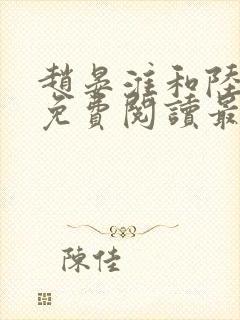 趙晏淮和陸
免費閱讀最
陳佳